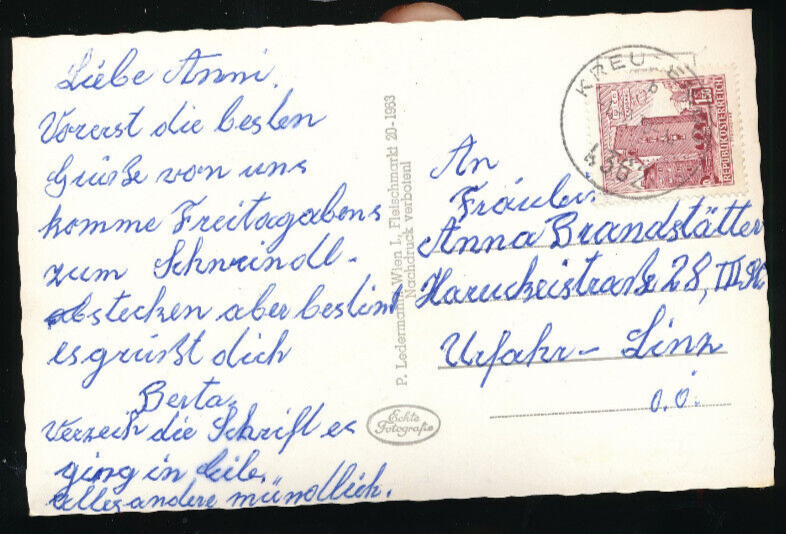 Liebe Anni,
Vorerst die besten
Grüße von uns
komme Freitagabens
zum Schweindl-
abstechen aber bestimt
es grüßt dich
Berta.
Verzeih die Schrift es
ging in Eile.
alles andere mündlich.
P. Ledermann, Wien I., Fleischmarkt 20-1963
Nachdruck verboten!
Echte
Fotografie
An
Fräulein
Anna Brandstätter
28, III
Urfahr-Linz
O.Ö.
4362
1.50
REPUBLIK ÖSTERREICH